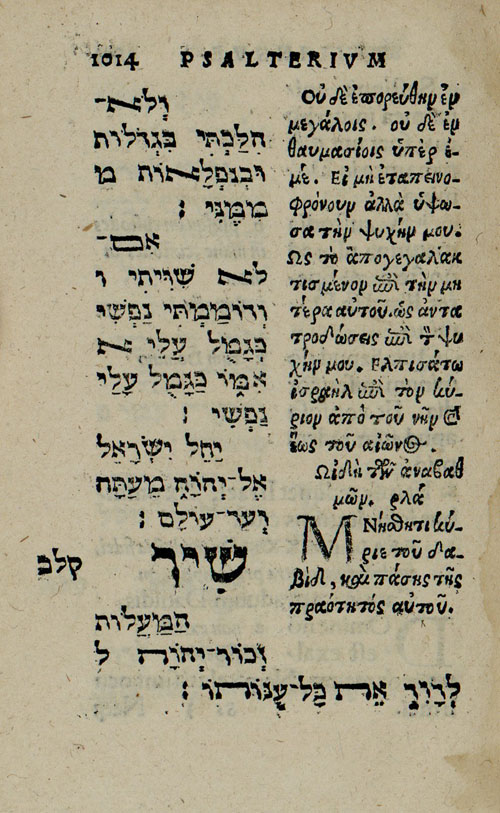 1014 PSALTERIVM
וְלֹא־
הִלַּכְתִּי בִּגְדֹלוֹת
וּבְנִפְלָאוֹת מ
מִמֶּנִּי :
אִם־
לֹא שִׁוִּיתִי ו
וְדוֹמַמְתִּי נַפְשִׁי
כְּגָמֻל עֲלֵי א
אִמּוֹ כַּגָּמֻל עָלַי
נַפְשִׁי :
יַחֵל יִשְׂרָאֵל
אֶל־יְהוָֹה מֵעַתָּה
וְעַד־עוֹלָם :
שִׁיר קלב
הַמַּעֲלוֹת
זְכוֹר־יְהוָֹה ל
לְדָוִד אֵת כָּל־עֻנּוֹתוֹ :
Οὐδὲ ἐπορεύθην ἐν
μεγάλοις. οὐδὲ ἐν
θαυμασίοις ὑπὲρ ἐ-
μέ. Εἰ μὴ ἐταπεινο-
φρόνουν ἀλλὰ ὕψω-
σα τὴν ψυχήν μου.
Ως τὸ ἀπογεγαλακ
τισμένον ἐπὶ τὴν μη
τέρα αὐτοῦ. ὡς ἀντα
ποδώσεις ἐπὶ τὴν ψυ
χήν μου. Ελπισάτω
ἰσραὴλ ἐπὶ τὸν κύ-
ριον ἀπὸ τοῦ νῦν καὶ
ἕως τοῦ αἰῶνος.
Ωιδὴ τῶν ἀναβαθ
μῶν. ρλά
ΜΝήσθητι κύ-
ριε τοῦ δα-
βὶδ, καὶ πάσης τῆς
πραότητός αὐτοῦ.